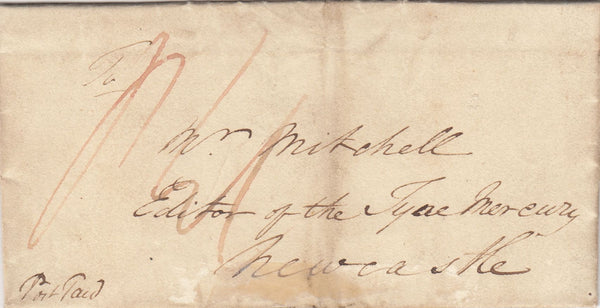 To
Mr Mitchell
Editor of the Tyne Mercury
Newcastle
Post Paid